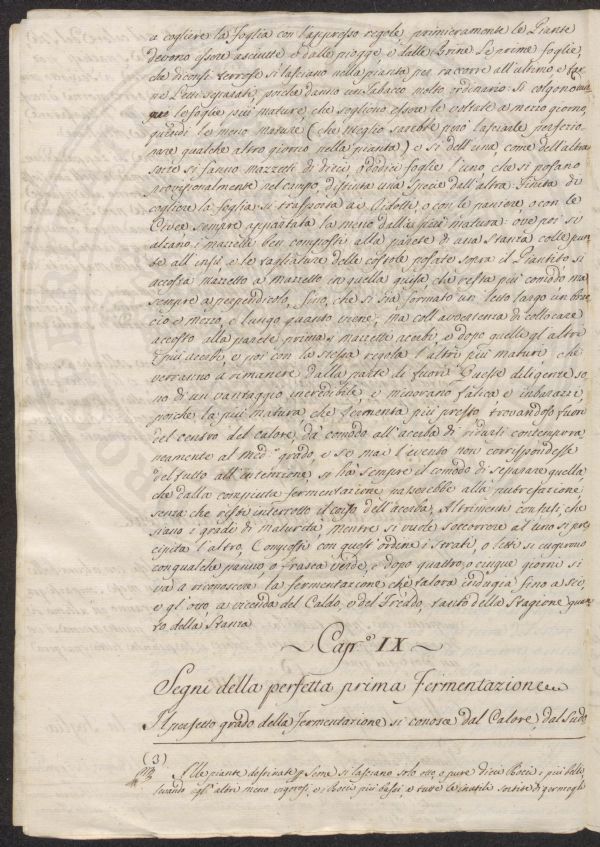 a cogliere la foglia con l'appresso regole, primieramente le Piante
devono essere asciutte e dalle piogge, e dalle brine. Le prime foglie,
che diconsi terrose si lasciano nella pianta per raccorre all'ultimo, e
separate, poiche danno un tabacco molto ordinario: si colgono
le foglie più mature, che sogliono essere le voltate a mezzo giorno,
quindi le meno mature (che meglio sarebbe però lasciarle perfezio
nare qualche altro giorno nella pianta) e sì dell'una, come dell'altra
sorte si fanno mazzetti di dieci, o dodici foglie l'uno, che si posano
provisionalmente nel campo, distinta una specie dall'altra. Finita di
cogliere la foglia si trasporta a' o con le paniere, o con le
sempre appartata la meno dalla più matura: ove poi si
alzano i mazzetti ben composti alla parete di una stanza colle pun
te all'insù, e le tagliature delle costole posate sopra il Piantito si
accosta mazzetto a mazzetto in quella guisa che resta più comodo ma
sempre a perpendicolo, sino, che si sia formato un letto largo un brac
cio e mezzo, e lungo quanto viene, ma coll'avvertenza di collocare
accosto alla parete prima i mazzetti acerbi, e dopo quelli gl'altri
più acerbi, e poi con la stessa regola l'altri più maturi, che
verranno a rimanere dalla parte di fuori. Queste diligenze so
no di un vantaggio incredibile, e minorano fatica, e imbarazzi,
poiche la più matura che fermenta più presto trovandosi fuori
del centro del calore, dà comodo all'acerba di ridursi contempora
neamente al med.o grado, e se mai l'evento non corrispondesse
del tutto all'intenzione si ha sempre il comodo di separare quella,
che dalla compiuta fermentazione passerebbe alla putrefazione
senza che resti interrotto il corso dell'acerba. Altrimenti confusi, che
siano i gradi di maturità mentre si vuole soccorrere al uno si pre
cipita l'altro. Composti con quest'ordine i strati, o letti si cuoprono
con qualche panno, o frasca verde, e dopo quattro, o cinque giorni si
va a riconoscere la fermentazione che talora indugia fino a sei,
e gl'otto, a vicenda del Caldo, e del Freddo, tanto della Stagione quan
to della Stanza
~ Cap.o IX ~
Segni della perfetta prima Fermentazione
Il perfetto grado della fermentazione si conosce dal Calore, dal Sudo
(3)
Alle piante destinate p seme si lasciano solo otto, o pure dieci Bocci i più belli,
levando egl'altri meno vigorosi, e i Bocci più bassi, e tutte le inutili sortite di germogli